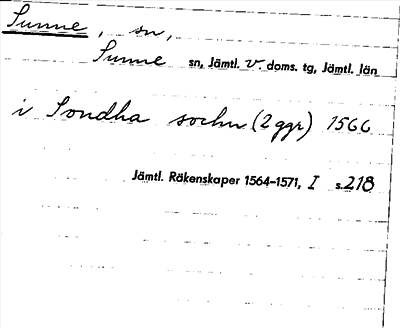 Sunne, sn,
Sunne sn, Jämtl. v. doms. tg, Jämtl. län
i Sondha sochn (2 ggr) 1566
Jämtl. Räkenskaper 1564-1571, I s. 218